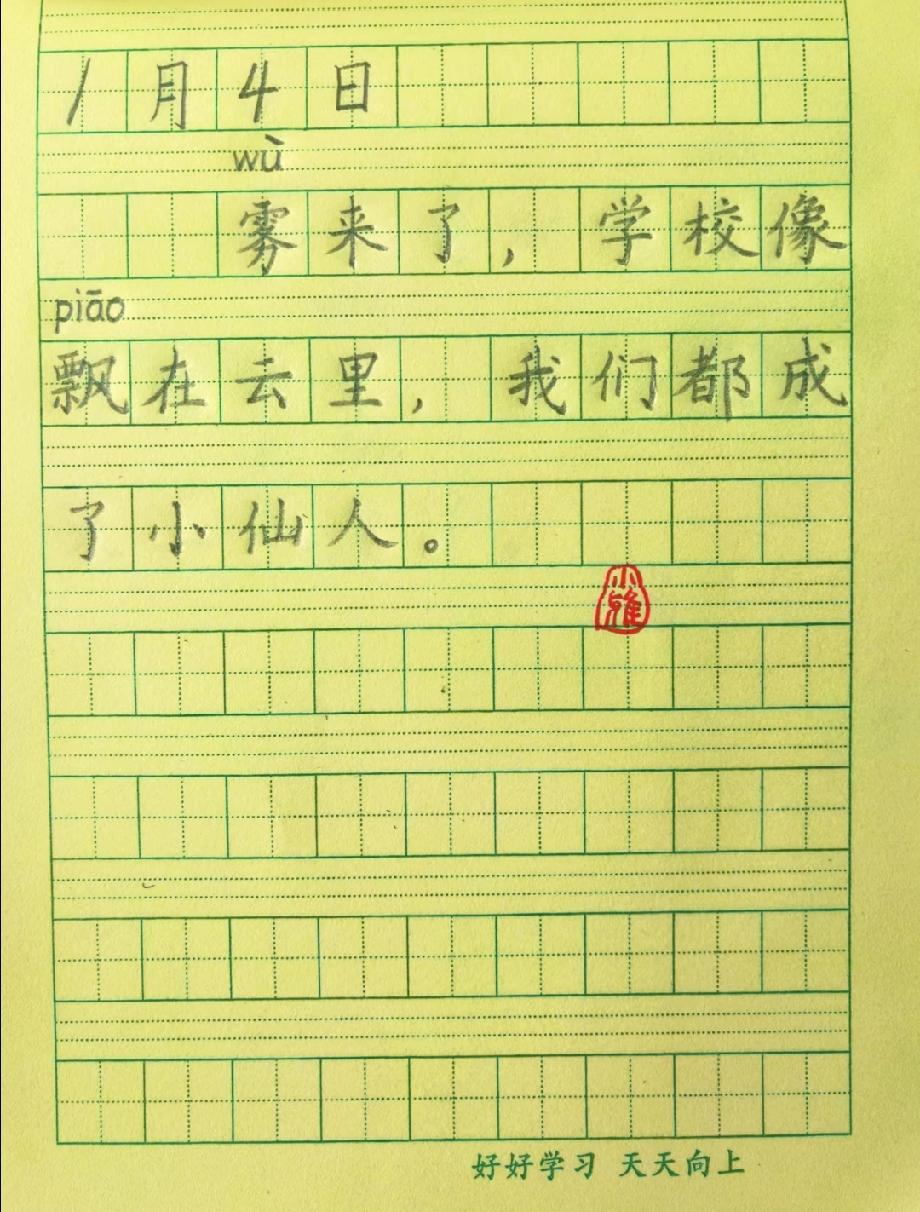 1月4日
wù
雾来了，学校像
piāo
飘在云里，我们都成
了小仙人。
小雅
好好学习 天天向上